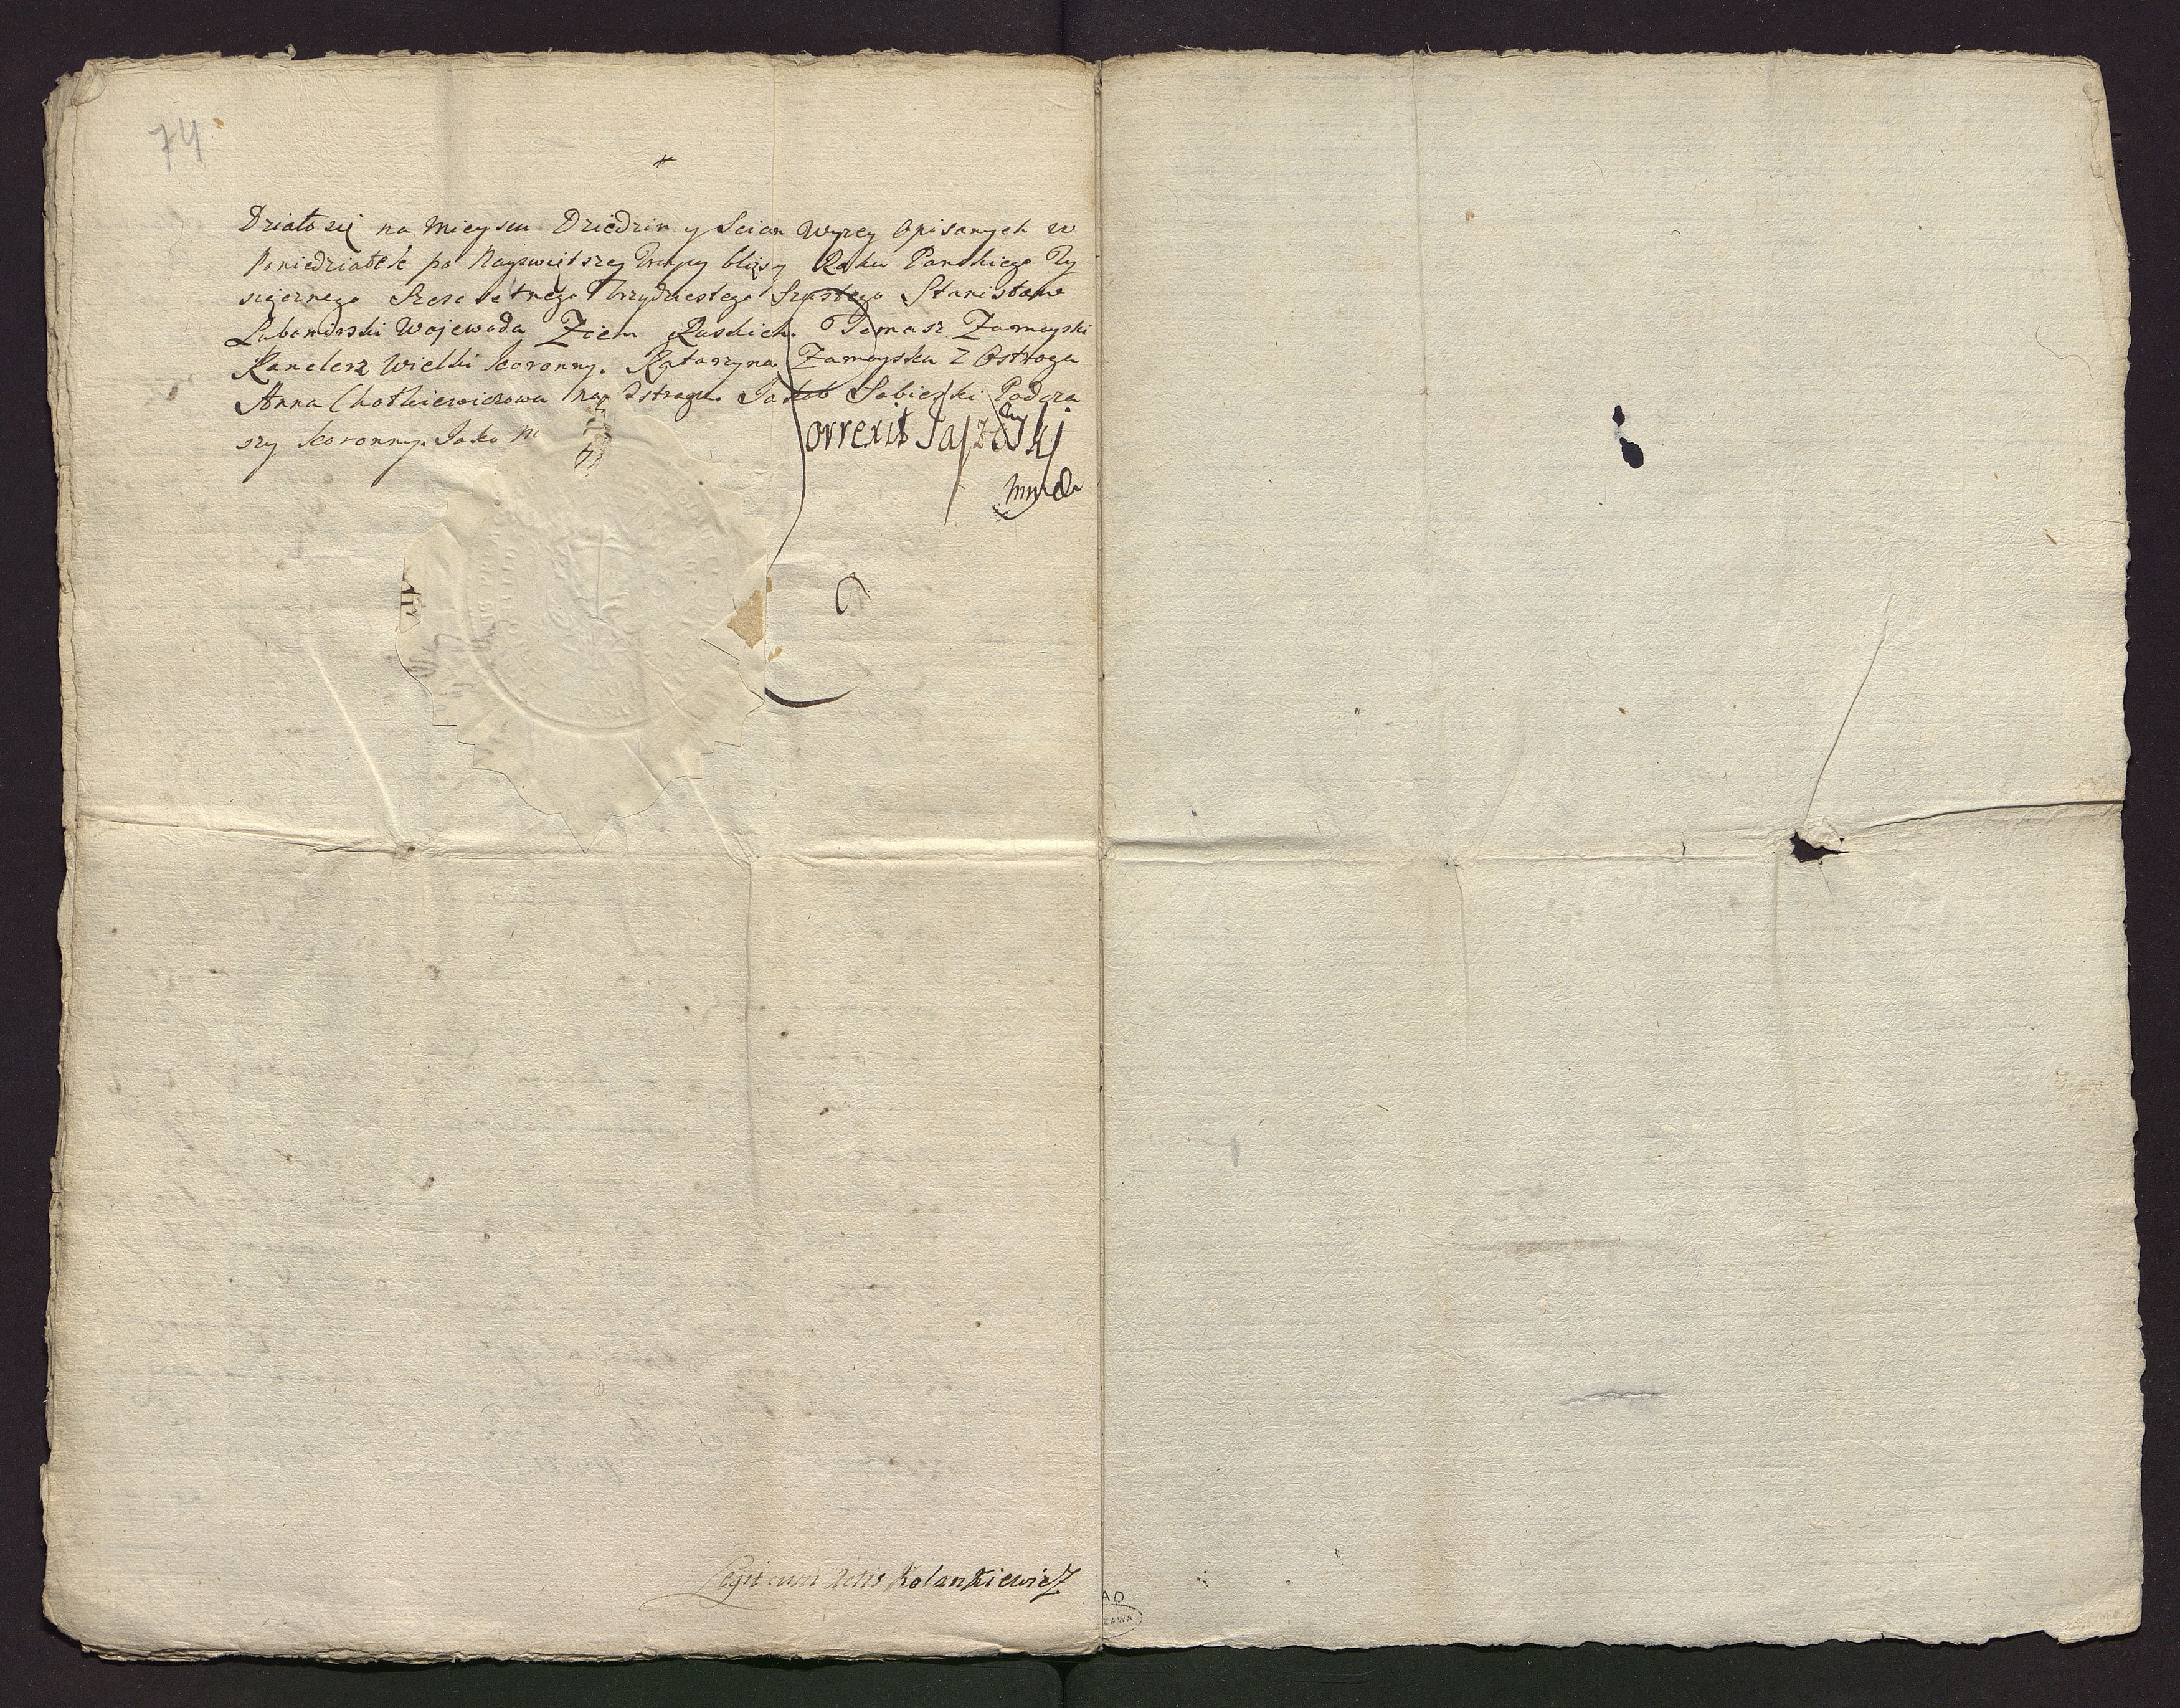 74
Działo się na Mieyscu Dziedzin y Scian Wyzey Opisanych w
Poniedziałek po Nayswiętszey Troycy blizszy Roku Panskiego Ty
siącznego Szescsetnego Trzydziestego Szostego Stanisław
Lubomirski Wojewoda Ziem Ruskich. Tomasz Zamoyski
Kanclerz Wielki Koronny. Katarzyna Zamoyska Z Ostroga
Anna Chotkiewiczowa na Ostrogu Jakob Sobieski Podcza
szy Koronny. Jako
Correxit
mp
Legit cum Actis Kolankiewicz
AD
ZAWA